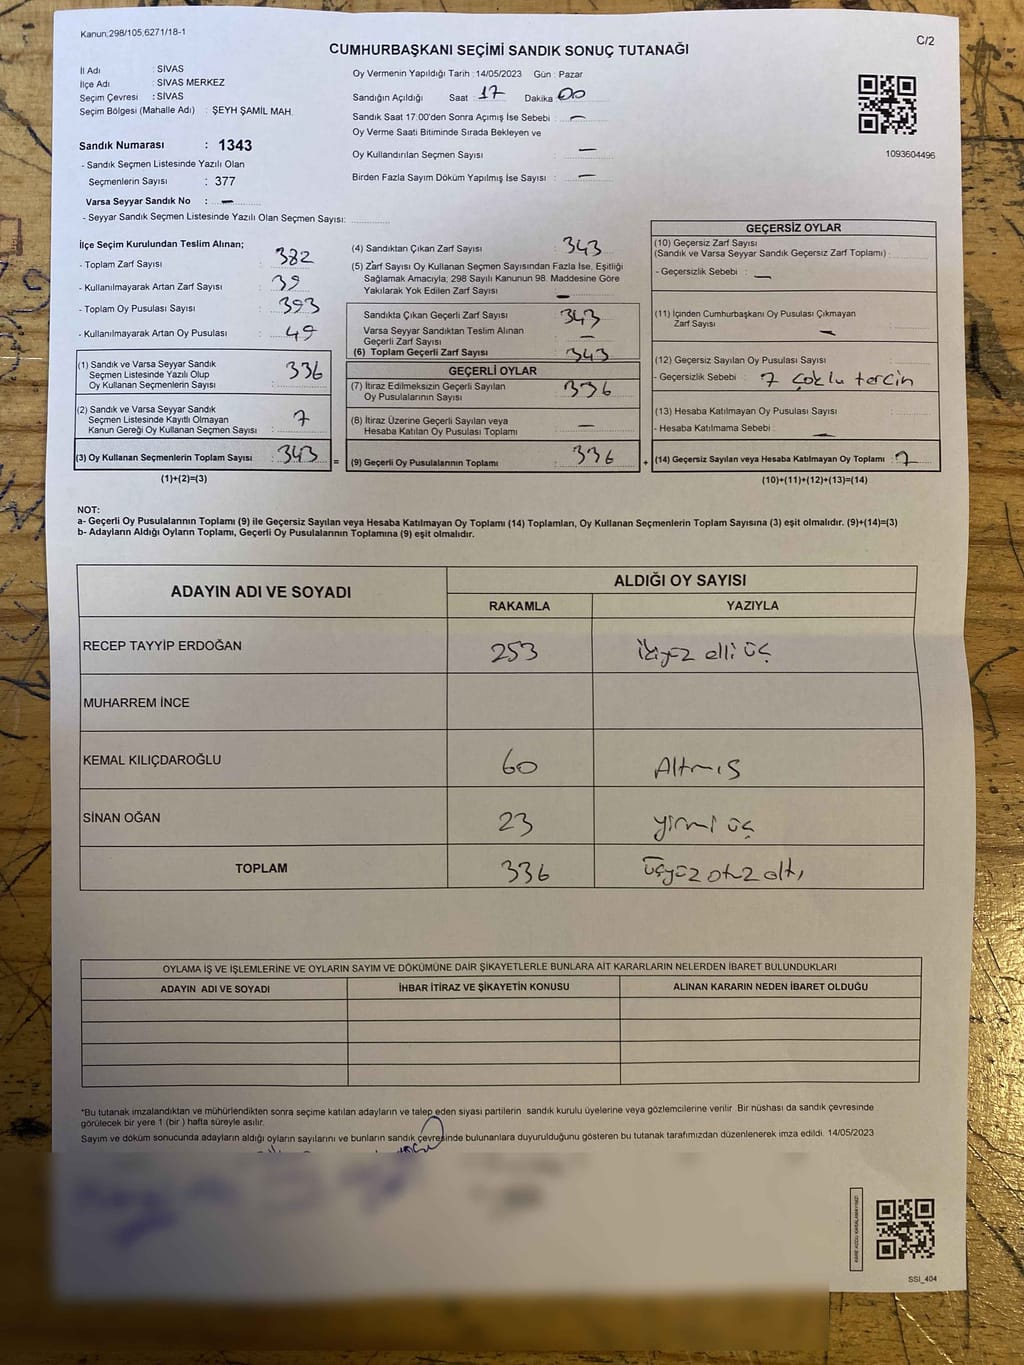 Kanun,298/105,6271/18-1
C/2
CUMHURBAŞKANI SEÇİMİ SANDIK SONUÇ TUTANAĞI
İl Adı : SİVAS
İlçe Adı : SİVAS MERKEZ
Seçim Çevresi : SİVAS
Seçim Bölgesi (Mahalle Adı) : ŞEYH ŞAMİL MAH.
Sandık Numarası : 1343
- Sandık Seçmen Listesinde Yazılı Olan
Seçmenlerin Sayısı : 377
Varsa Seyyar Sandık No : –
- Seyyar Sandık Seçmen Listesinde Yazılı Olan Seçmen Sayısı:
Oy Vermenin Yapıldığı Tarih : 14/05/2023 Gün : Pazar
Sandığın Açıldığı Saat : 17 Dakika 00
Sandık Saat 17:00'den Sonra Açımış İse Sebebi : –
Oy Verme Saati Bitiminde Sırada Bekleyen ve
Oy Kullandırılan Seçmen Sayısı : –
Birden Fazla Sayım Döküm Yapılmış İse Sayısı : –
1093604496
İlçe Seçim Kurulundan Teslim Alınan;
- Toplam Zarf Sayısı : 382
- Kullanılmayarak Artan Zarf Sayısı : 39
- Toplam Oy Pusulası Sayısı : 393
- Kullanılmayarak Artan Oy Pusulası : 49
(1) Sandık ve Varsa Seyyar Sandık
Seçmen Listesinde Yazılı Olup
Oy Kullanan Seçmenlerin Sayısı : 336
(2) Sandık ve Varsa Seyyar Sandık
Seçmen Listesinde Kayıtlı Olmayan
Kanun Gereği Oy Kullanan Seçmen Sayısı : 7
(3) Oy Kullanan Seçmenlerin Toplam Sayısı : 343
(1)+(2)=(3)
=
(4) Sandıktan Çıkan Zarf Sayısı : 343
(5) Zarf Sayısı Oy Kullanan Seçmen Sayısından Fazla İse, Eşitliği
Sağlamak Amacıyla, 298 Sayılı Kanunun 98. Maddesine Göre
Yakılarak Yok Edilen Zarf Sayısı : –
Sandıkta Çıkan Geçerli Zarf Sayısı : 343
Varsa Seyyar Sandıktan Teslim Alınan
Geçerli Zarf Sayısı : –
(6) Toplam Geçerli Zarf Sayısı : 343
GEÇERLİ OYLAR
(7) İtiraz Edilmeksizin Geçerli Sayılan
Oy Pusulalarının Sayısı : 336
(8) İtiraz Üzerine Geçerli Sayılan veya
Hesaba Katılan Oy Pusulası Toplamı : –
(9) Geçerli Oy Pusulalarının Toplamı : 336
+
GEÇERSİZ OYLAR
(10) Geçersiz Zarf Sayısı
(Sandık ve Varsa Seyyar Sandık Geçersiz Zarf Toplamı) :
- Geçersizlik Sebebi : –
(11) İçinden Cumhurbaşkanı Oy Pusulası Çıkmayan
Zarf Sayısı : –
(12) Geçersiz Sayılan Oy Pusulası Sayısı :
- Geçersizlik Sebebi : 7 çoklu tercin
(13) Hesaba Katılmayan Oy Pusulası Sayısı :
- Hesaba Katılmama Sebebi : –
(14) Geçersiz Sayılan veya Hesaba Katılmayan Oy Toplamı : 7
(10)+(11)+(12)+(13)=(14)
NOT:
a- Geçerli Oy Pusulalarının Toplamı (9) ile Geçersiz Sayılan veya Hesaba Katılmayan Oy Toplamı (14) Toplamları, Oy Kullanan Seçmenlerin Toplam Sayısına (3) eşit olmalıdır. (9)+(14)=(3)
b- Adayların Aldığı Oyların Toplamı, Geçerli Oy Pusulalarının Toplamına (9) eşit olmalıdır.
ADAYIN ADI VE SOYADI ALDIĞI OY SAYISI
RAKAMLA YAZIYLA
RECEP TAYYİP ERDOĞAN 253 ikiyüz elli üç
MUHARREM İNCE
KEMAL KILIÇDAROĞLU 60 Altmış
SİNAN OĞAN 23 yirmi üç
TOPLAM 336 Üçyüz otuz altı
OYLAMA İŞ VE İŞLEMLERİNE VE OYLARIN SAYIM VE DÖKÜMÜNE DAİR ŞİKAYETLERLE BUNLARA AİT KARARLARIN NELERDEN İBARET BULUNDUKLARI
ADAYIN ADI VE SOYADI İHBAR İTİRAZ VE ŞİKAYETİN KONUSU ALINAN KARARIN NEDEN İBARET OLDUĞU
*Bu tutanak imzalandıktan ve mühürlendikten sonra seçime katılan adayların ve talep eden siyasi partilerin sandık kurulu üyelerine veya gözlemcilerine verilir. Bir nüshası da sandık çevresinde
görülecek bir yere 1 (bir ) hafta süreyle asılır.
Sayım ve döküm sonucunda adayların aldığı oyların sayılarını ve bunların sandık çevresinde bulunanlara duyurulduğunu gösteren bu tutanak tarafımızdan düzenlenerek imza edildi. 14/05/2023
SSI_404